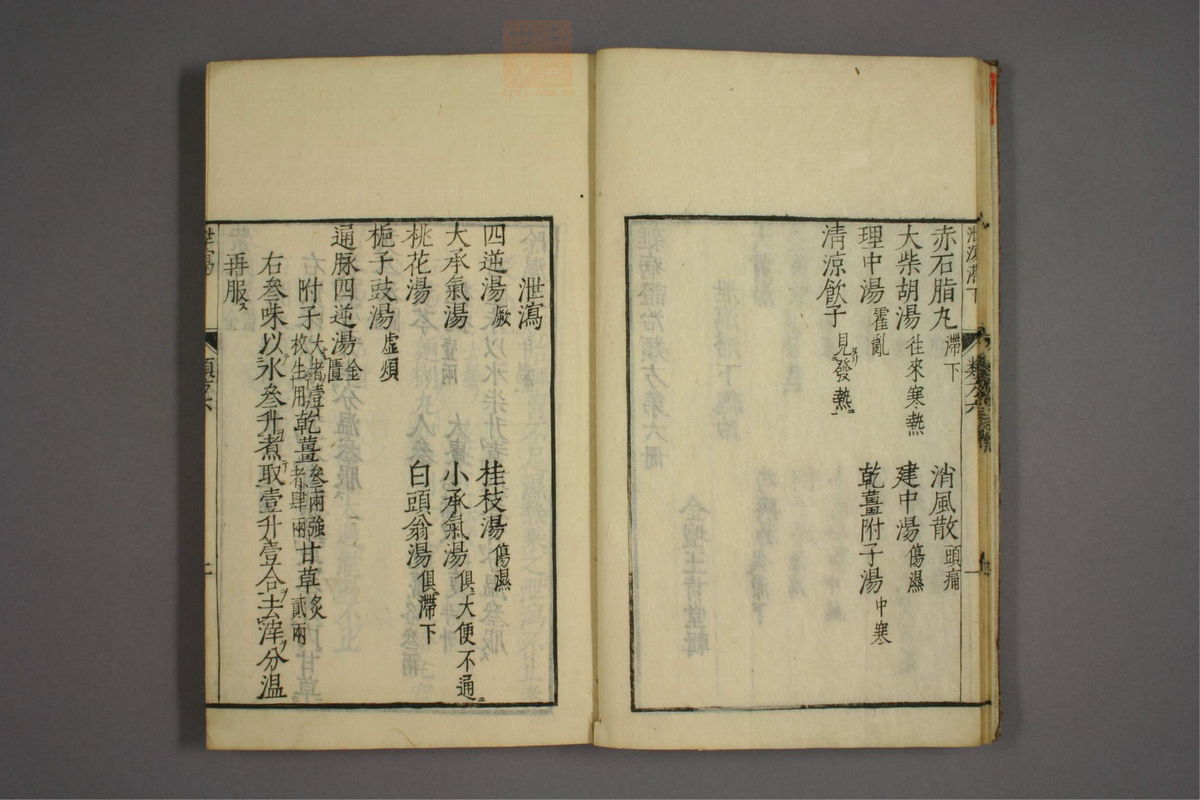 赤石脂丸 滯下 消風散 頭痛
大柴胡湯 往來寒熱 建中湯 傷濕
理中湯 霍亂 乾薑附子湯 中寒
清涼飲子 見發熱
泄瀉
四逆湯 厥 桂枝湯 傷濕
大承氣湯 小承氣湯 俱大便不通
桃花湯 白頭翁湯 俱滯下
梔子豉湯 虛煩
通脉四逆湯 金匱
附子 大者壹枚生用 乾薑 叁兩強者肆兩 甘草 炙貳兩
右叁味以水叁升煮取壹升壹合去滓分溫
再服